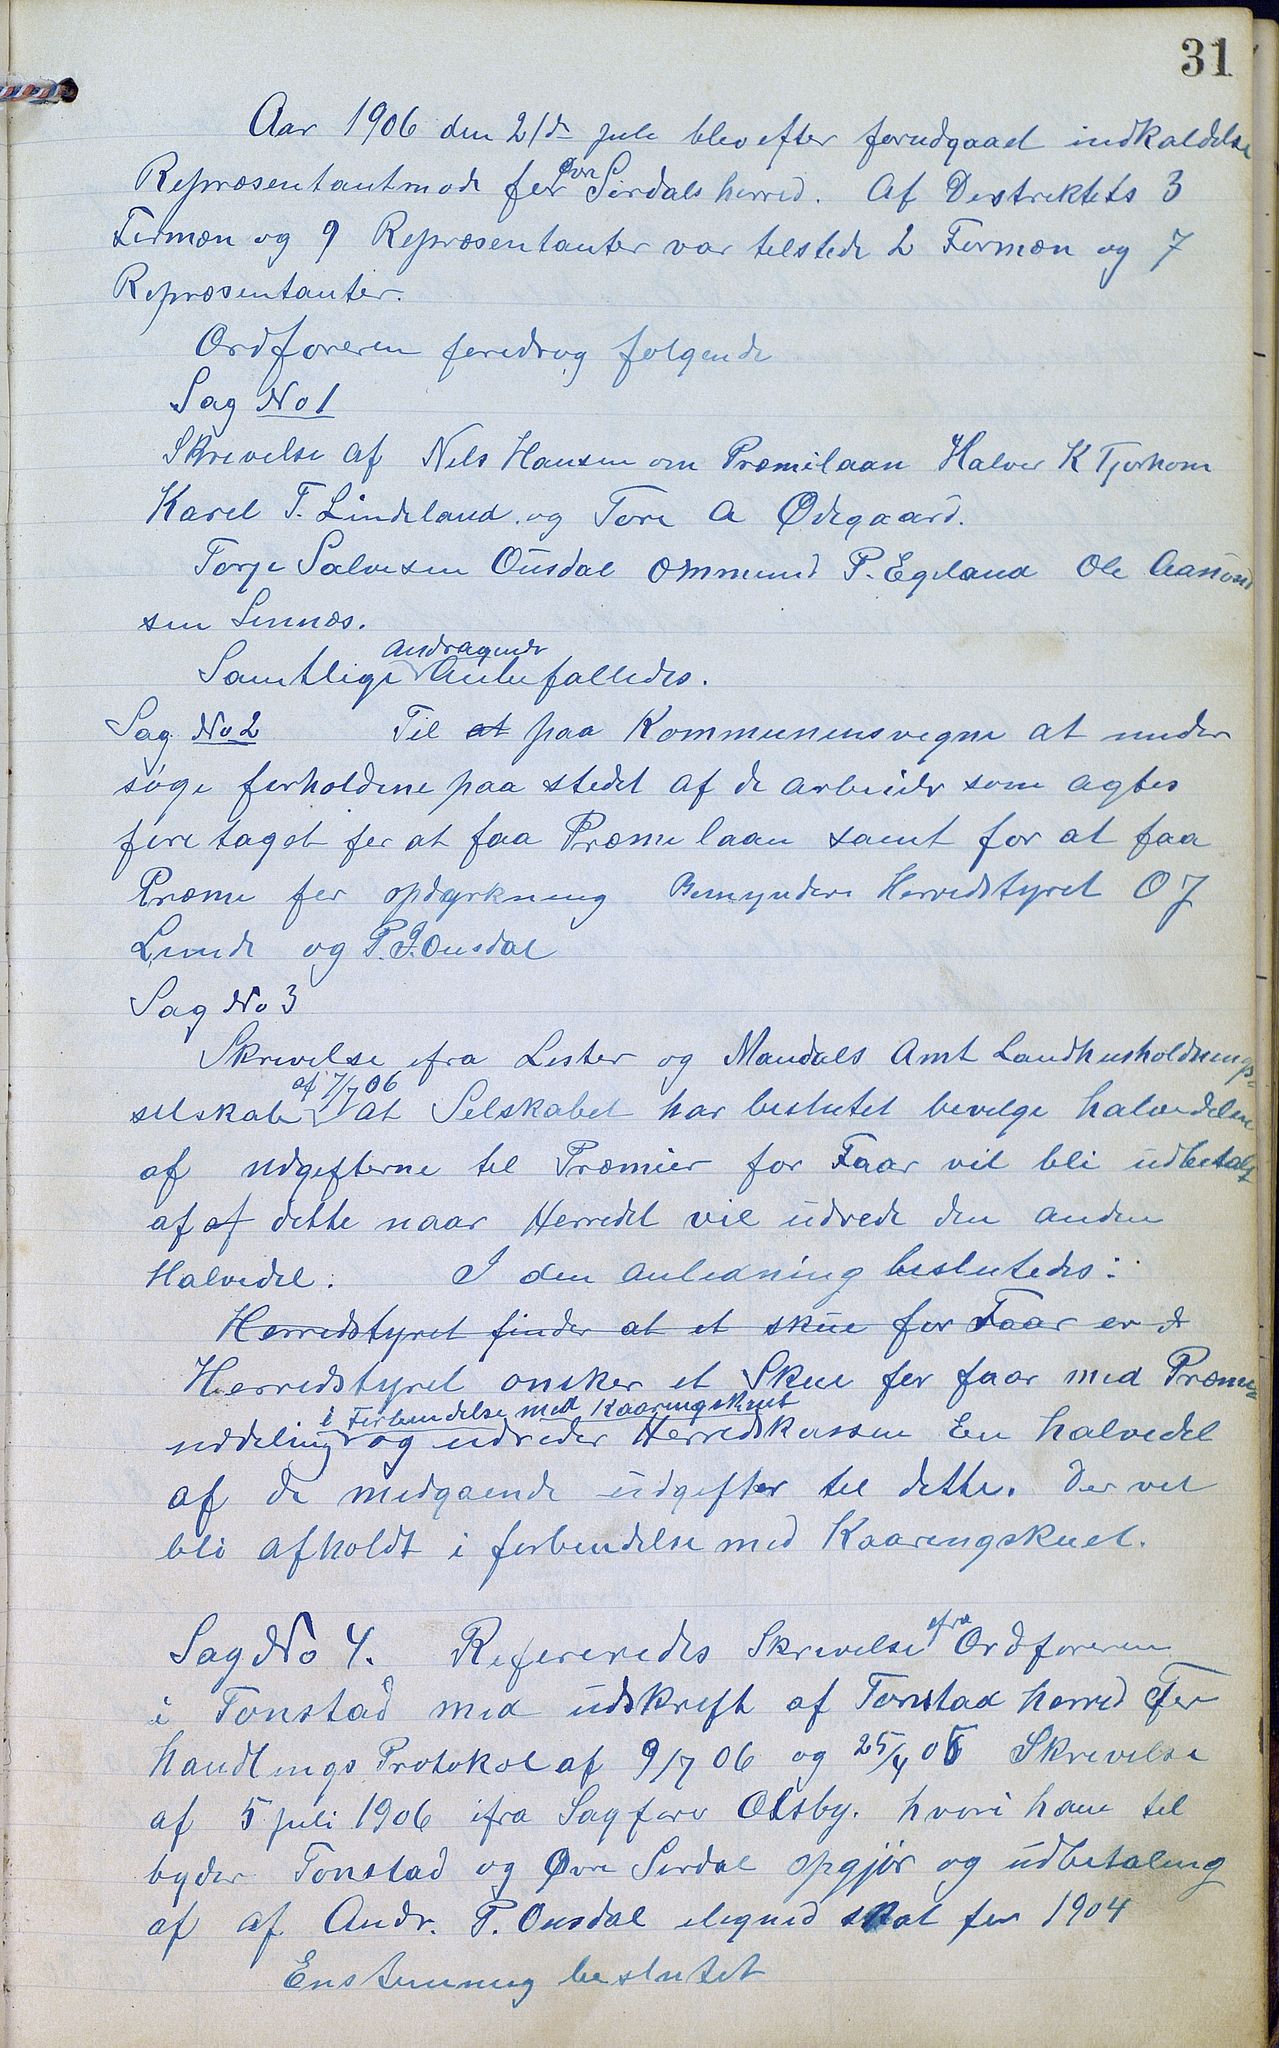 31
Aar 1906 den 21de juli blev efter forudgaaet indkaldelse
Repræsentantmøde for Øvre Sirdals herred. Af Destriktets 3
Formæn og 9 Repræsentanter var telstede 2 Formæn og 7
Repræsentanter.
Ordføreren foredrog følgende
Sag No 1
Skrivelse af Nels Hansen om Præmilaan Halvor K Tjorhom
Karel T. Lindeland og Tore A Ødegaard.
Torje Salvesen Ousdal Ommund P. Egeland Ole Aanund
sen Sinnæs.
Samtlige andragende Anbefalledes.
Sag No 2 Til at paa Kommunensvegne at under
søge forholdene paa stedet af de arbeider som agtes
foretaget for at faa Præmelaan samt for at faa
Præme for opdyrkning Bemyndere Herredstyret O J
Lunde og P. J. Ousdal
Sag No 3
Skrivelse ifra Lister og Mandals Amt Landhusholdnings-
selskab af 7/7 06 at Selskabet har beslutet bevelge halvedelen
af udgefterne tel Præmier for Faar vil bli udbetalt
af af dette naar Herredet vil udrede den anden
Halvedel. I den anledning beslutedes:
Herredstyret finder at et skue for Faar er d
Herredstyret ønsker et Skue for faar med Præmi-
uddeling i Forbindelse med Kaaringskuet og udreder Herredskassen En halvedel
af de medgaaende udgefter tel dette. Der vel
bli afholdt i forbendelse med Kaaringskuet.
Sag No 4. Refereredes Skrivelse ifra Ordføreren
i Tonstad med udskrift af Tonstad herred For
handlings Protokol af 9/7 06 og 25/4 05 Skrivelse
af 5 juli 1906 ifra Sagfører Olsby. hvori han tel
byder Tonstad og Øvre Serdal opgjør og udbetaling
af af Andr. P. Ousdal elegned skat for 1904
Enstemmig beslutet